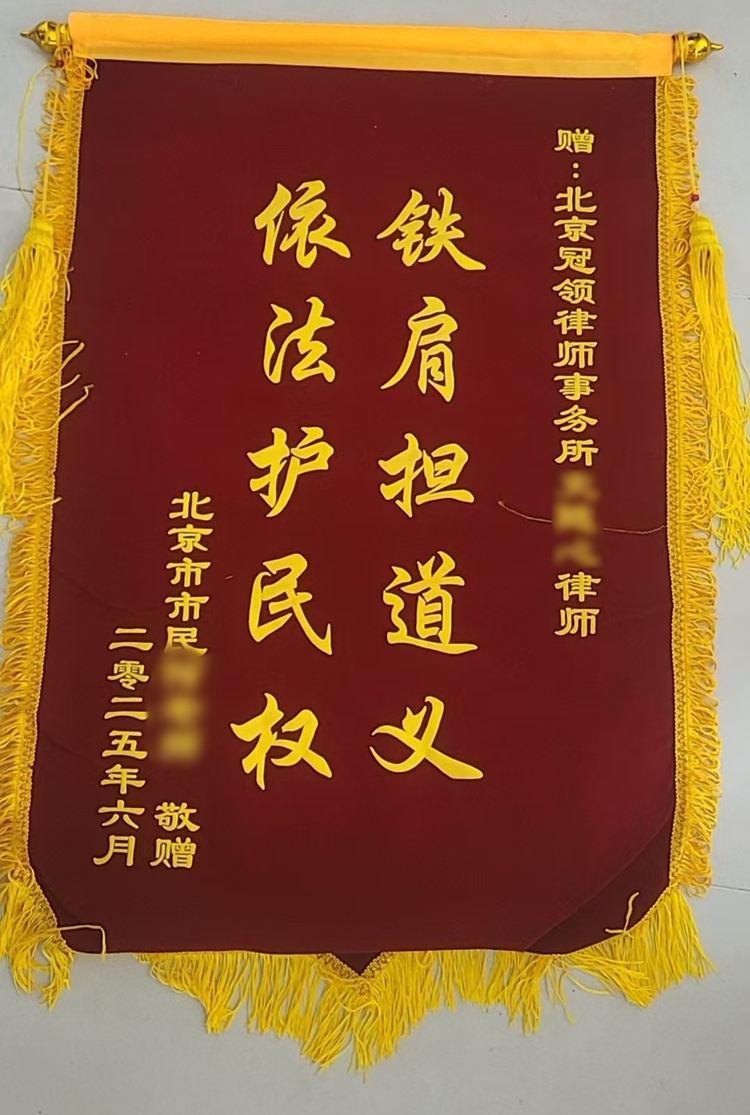 赠：北京冠领律师事务所 律师
铁肩担道义
依法护民权
北京市市民 敬赠
二零二五年六月